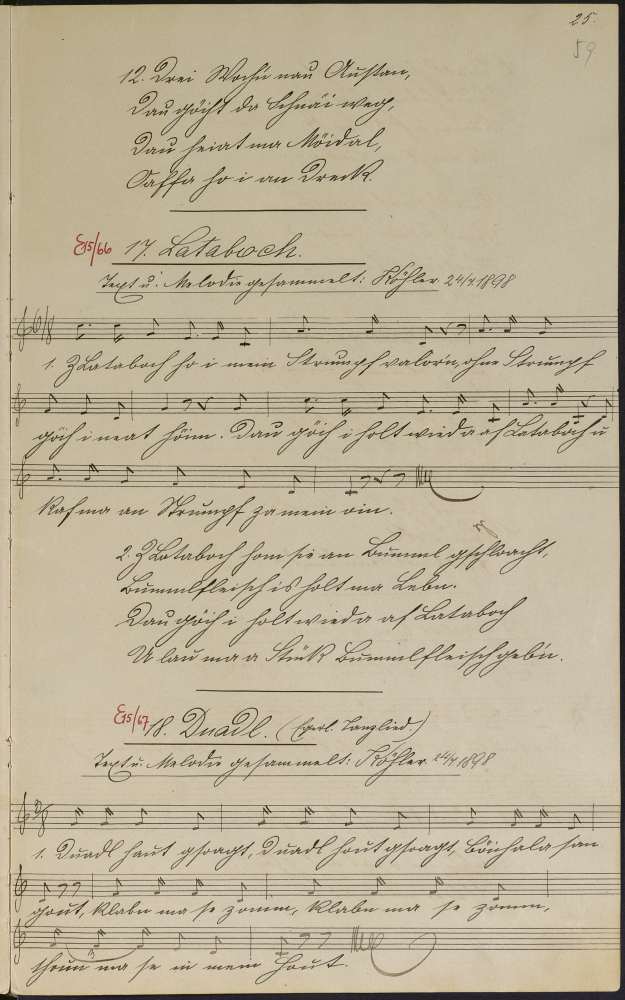 25.
59
12. Drei Woch'n nau Austan,
Dau göiht da Schnäi weg,
Dau heiat ma Möidal,
Oaffa ho i an Dreck.
E15/66 17. Lataboch.
Text u. Melodie gesammelt: Köhler 24/4 1898
1. Z Lataboch ho i mein Strumpf valorn, ohne Strumpf
göih i neat hoim. Dau göih i holt wieda af Lataboch u
kaf ma an Strumpf zu mein oin.
2. Z Lotaboch hom sie an Bumml gschloacht,
Bummlfleisch is holt ma Leb'n.
Dau göih i holt wieda af Lataboch
U lau ma a Stück Bummlfleisch geb'n.
E15/67 18. Duadl. (Egerl. Tanzlied.)
Text u. Melodie gesammelt: Köhler 24/4 1898
1. Duadl haut gsagt, Duadl haut gsagt, san
gout, klabn ma se zamm, klabn ma se zamm,
thoun ma se in mein Hout.